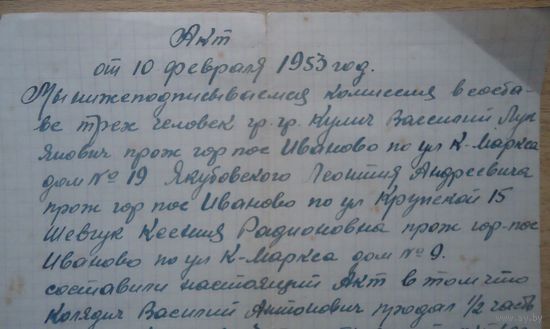 Акт
от 10 февраля 1953 год.
Мы нижеподписываемся комиссия в соста-
ве трех человек гр. гр. Кулич Вассилий Лук
янович прож гор пос Иваново по ул К-Маркса
дом № 19 Якубовского Леонтия Андреевича
прож гор пос Иваново по ул Крупской 15
Шевчук Ксения Радионовна прож гор-пос
Иваново по ул К-Маркса дом № 9.
составили настоящий Акт в том что
Колядич Василий Антонович продал 1/2 часть
www.ay.by